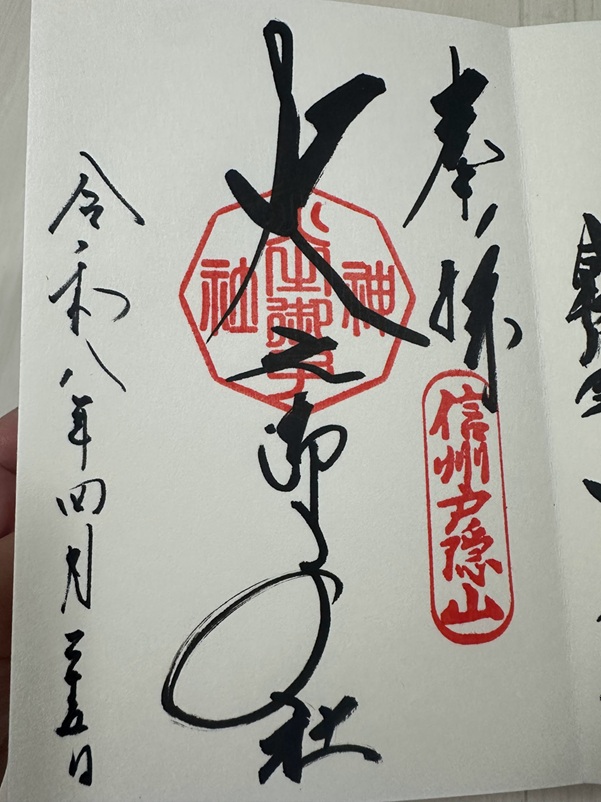 奉拝
信州戸隠山
火之御子社
神
火之御子
社
令和八年四月二十五日